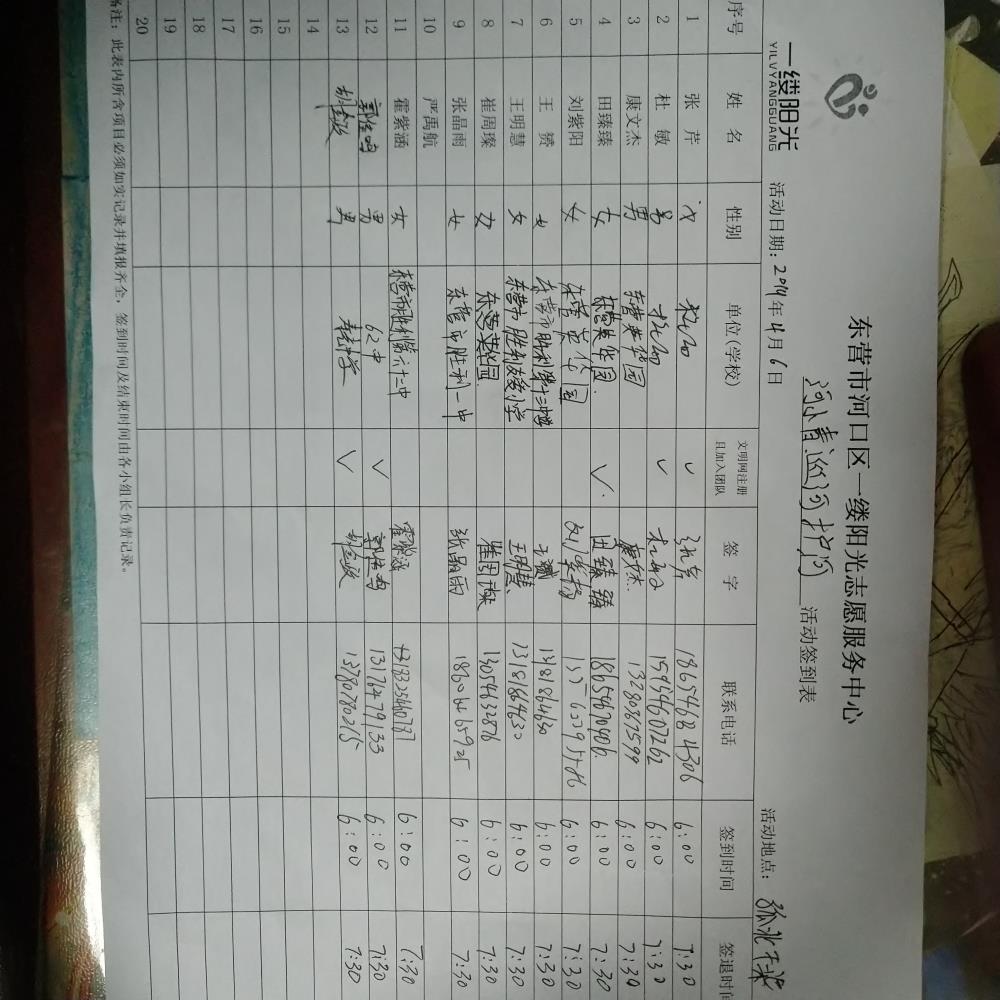 东营市河口区一缕阳光志愿服务中心
河小青巡河护河 活动签到表
一缕阳光
YILVYANGGUANG
活动日期：2019年4月6日 活动地点：孤北干渠
序号 姓名 性别 单位(学校) 文明网注册且加入团队 签字 联系电话 签到时间 签退时间
1 张芹 女 ✓ 张芹 18654684306 6:00 7:30
2 杜敏 ✓ 15954607262 6:00 7:30
3 康文杰 男 东营英华园 康文杰 13280367599 6:00 7:30
4 田臻臻 女 东营英华园 ✓ 田臻臻 18654670906 6:00 7:30
5 刘紫阳 女 东营英华园 刘紫阳 6:00 7:30
6 王赟 女 王赟 6:00 7:30
7 王明慧 女 东营市胜利友爱小学 王明慧 13181864630 6:00 7:30
8 崔周璨 女 东营英华园 崔周璨 13054632876 6:00 7:30
9 张晶雨 女 东营市胜利一中 张晶雨 18606465925 6:00 7:30
10 严禹航
11 霍紫涵 女 东营市胜利第六十二中 霍紫涵 6:00 7:30
12 男 62中 ✓ 13176479133 6:00 7:30
13 男 ✓ 13780780215 6:00 7:30
14
15
16
17
18
19
20
备注：此表内所含项目必须如实记录并填报齐全，签到时间及结束时间由各小组长负责记录。